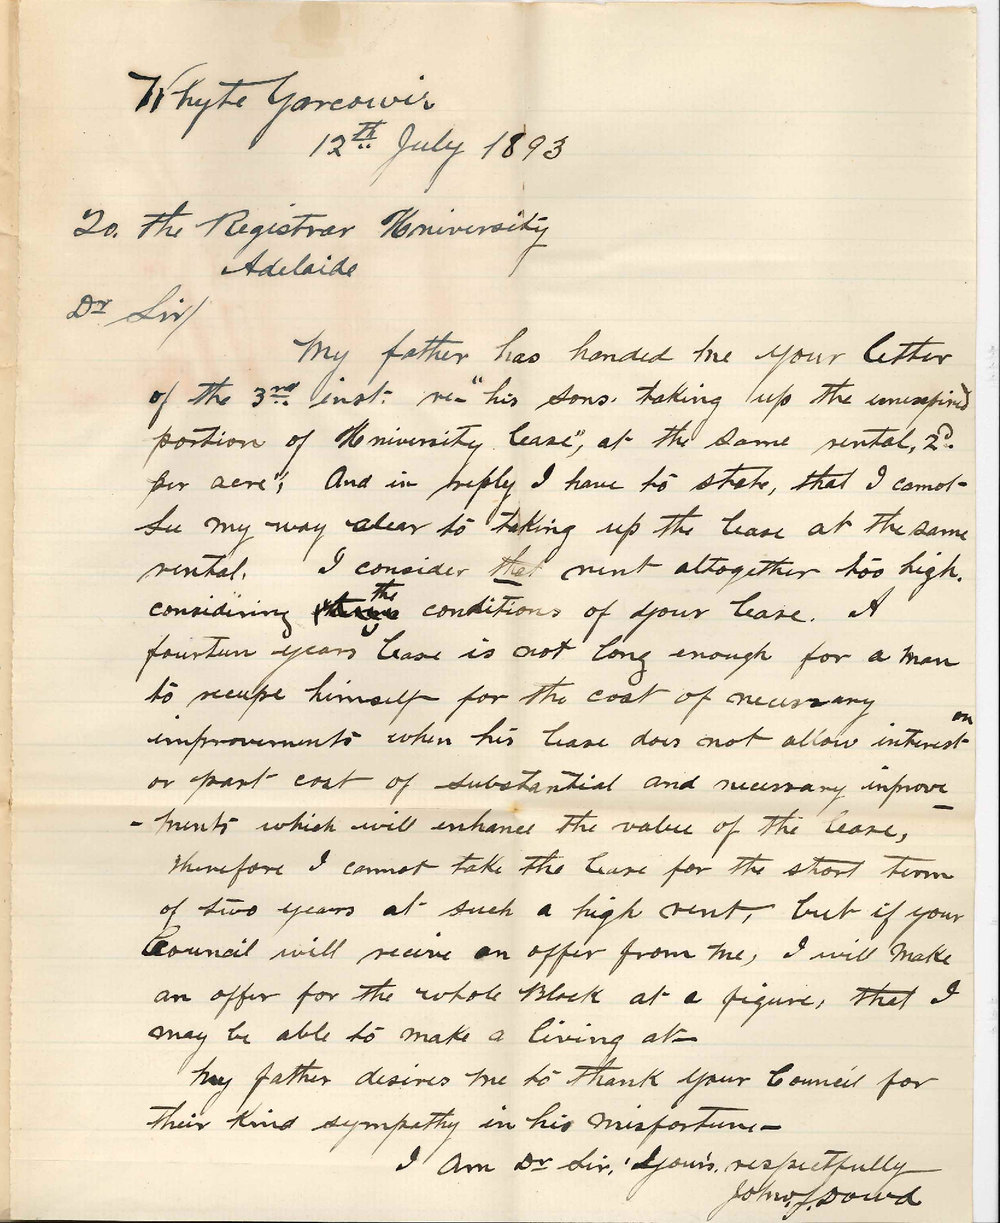 Whyte Yarcowie
12th July 1893
To. the Registrar University
Adelaide
Dr Sir/
My father has handed me your letter
of the 3rd inst. re "his sons. taking up the unexpired
portion of University lease", at the same rental, 2d.
per acre"; And in reply I have to state, that I cannot
See my way clear to taking up the lease at the same
rental. I consider that rent altogether too high.
considering the conditions of your lease. A
fourteen years lease is not long enough for a man
to recupe himself for the cost of necessary
improvements when his lease does not allow interest on
or part cost of substantial and necessary improve
-ments which will enhance the value of the lease,
therefore I cannot take the lease for the short term
of two years at such a high rent, but if your
Council will recive an offer from me, I will make
an offer for the whole Block at a figure, that I
may be able to make a living at-
My father desires me to thank your Council for
their kind sympathy in his misfortune-
I am Dr Sir, Yours. respectfully
John. J. Dowd